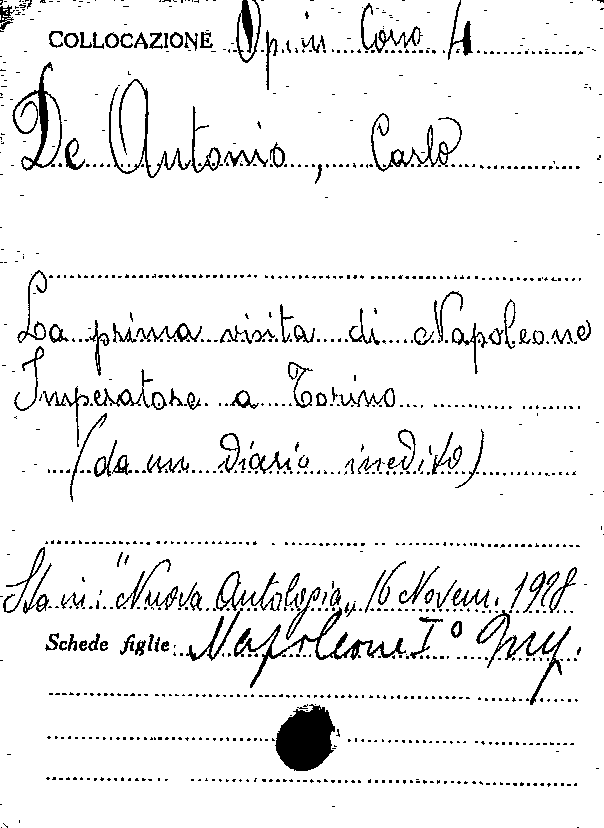 COLLOCAZIONE Op. in Corso 4
De Antonio, Carlo
La prima visita di Napoleone
Imperatore a Torino
(da un diario inedito)
Sta in: "Nuova Antologia„ 16 Novem. 1928
Schede figlie: Napoleone I° Imp.